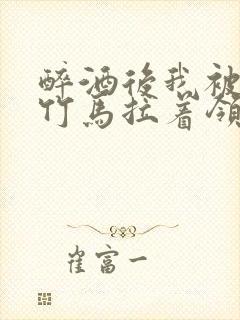 醉酒後我被
竹馬拉着領
崔富一